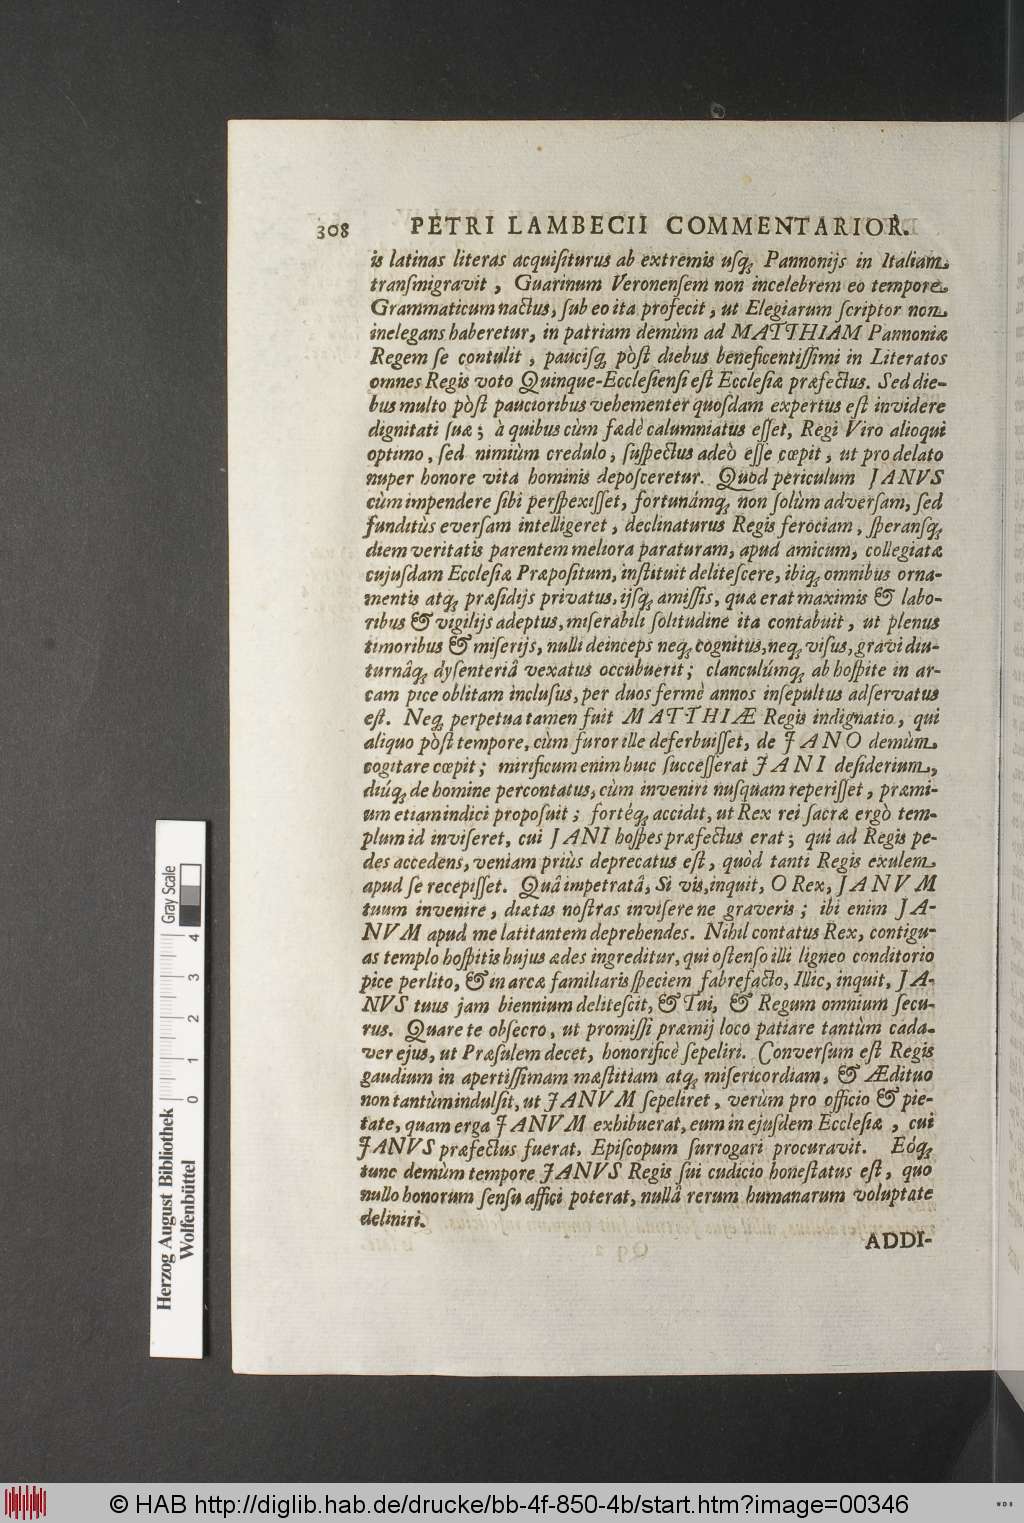 308 PETRI LAMBECII COMMENTARIOR.
is latinas literas acquiſiturus ab extremis uſq; Pannonijs in Italiam
tranſmigravit, Guarinum Veronenſem non incelebrem eo tempore
Grammaticum nactus, ſub eo ita profecit, ut Elegiarum ſcriptor non
inelegans haberetur, in patriam demùm ad MATTHIAM Pannoniæ
Regem ſe contulit, pauciſq; pòſt diebus beneficentiſſimi in Literatos
omnes Regis voto Quinque-Eccleſienſi eſt Eccleſiæ præfectus. Sed die-
bus multo pòſt paucioribus vehementer quoſdam expertus eſt invidere
dignitati ſuæ; à quibus cùm fædè calumniatus eſſet, Regi Viro alioqui
optimo, ſed nimiùm credulo, ſuſpectus adeò eſſe cœpit, ut pro delato
nuper honore vita hominis depoſceretur. Quod periculum JANVS
cùm impendere ſibi perſpexiſſet, fortunámq; non ſolùm adverſam, ſed
funditùs everſam intelligeret, declinaturus Regis ferociam, ſperanſq;
diem veritatis parentem meliora paraturam, apud amicum, collegiatæ
cujuſdam Eccleſiæ Præpoſitum, inſtituit deliteſcere, ibiq; omnibus orna-
mentis atq; præſidijs privatus, ijſq; amiſſis, quæ erat maximis & labo-
ribus & vigilijs adeptus, miſerabili ſolitudine ita contabuit, ut plenus
timoribus & miſerijs, nulli deinceps neq; cognitus, neq; viſus, gravi diu-
turnâq; dyſenteriâ vexatus occubuerit; clanculúmq; ab hoſpite in ar-
cam pice oblitam incluſus, per duos fermè annos inſepultus adſervatus
eſt. Neq; perpetua tamen fuit MATTHIÆ Regis indignatio, qui
aliquo pòſt tempore, cùm furor ille deferbuiſſet, de JANO demùm
cogitare cœpit; mirificum enim huic ſucceſſerat JANI deſiderium,
diúq; de homine percontatus, cùm inveniri nuſquam reperiſſet, præmi-
um etiam indici propoſuit; fortéq; accidit, ut Rex rei ſacræ ergò tem-
plum id inviſeret, cui JANI hoſpes præfectus erat; qui ad Regis pe-
des accedens, veniam priùs deprecatus eſt, quòd tanti Regis exulem
apud ſe recepiſſet. Quâ impetratâ, Si vis, inquit, O Rex, JANVM
tuum invenire, diætas noſtras inviſere ne graveris; ibi enim JA-
NVM apud me latitantem deprehendes. Nihil contatus Rex, contigu-
as templo hoſpitis hujus ædes ingreditur, qui oſtenſo illi ligneo conditorio
pice perlito, & in arcæ familiaris ſpeciem fabrefacto, Illic, inquit, JA-
NVS tuus jam biennium deliteſcit, & Tui, & Regum omnium ſecu-
rus. Quare te obſecro, ut promiſſi præmij loco patiare tantùm cada-
ver ejus, ut Præſulem decet, honorificè ſepeliri. Converſum eſt Regis
gaudium in apertiſſimam mæſtitiam atq; miſericordiam, & Ædituo
non tantùm indulſit, ut JANVM ſepeliret, verùm pro officio & pie-
tate, quam erga JANVM exhibuerat, eum in ejuſdem Eccleſiæ, cui
JANVS præfectus fuerat, Epiſcopum ſurrogari procuravit. Eóq;
tunc demùm tempore JANVS Regis ſui cudicio honeſtatus eſt, quo
nullo honorum ſenſu affici poterat, nullâ rerum humanarum voluptate
deliniri.
ADDI-
Herzog August Bibliothek
Wolfenbüttel
0 1 2 3 4
Gray Scale
© HAB http://diglib.hab.de/drucke/bb-4f-850-4b/start.htm?image=00346